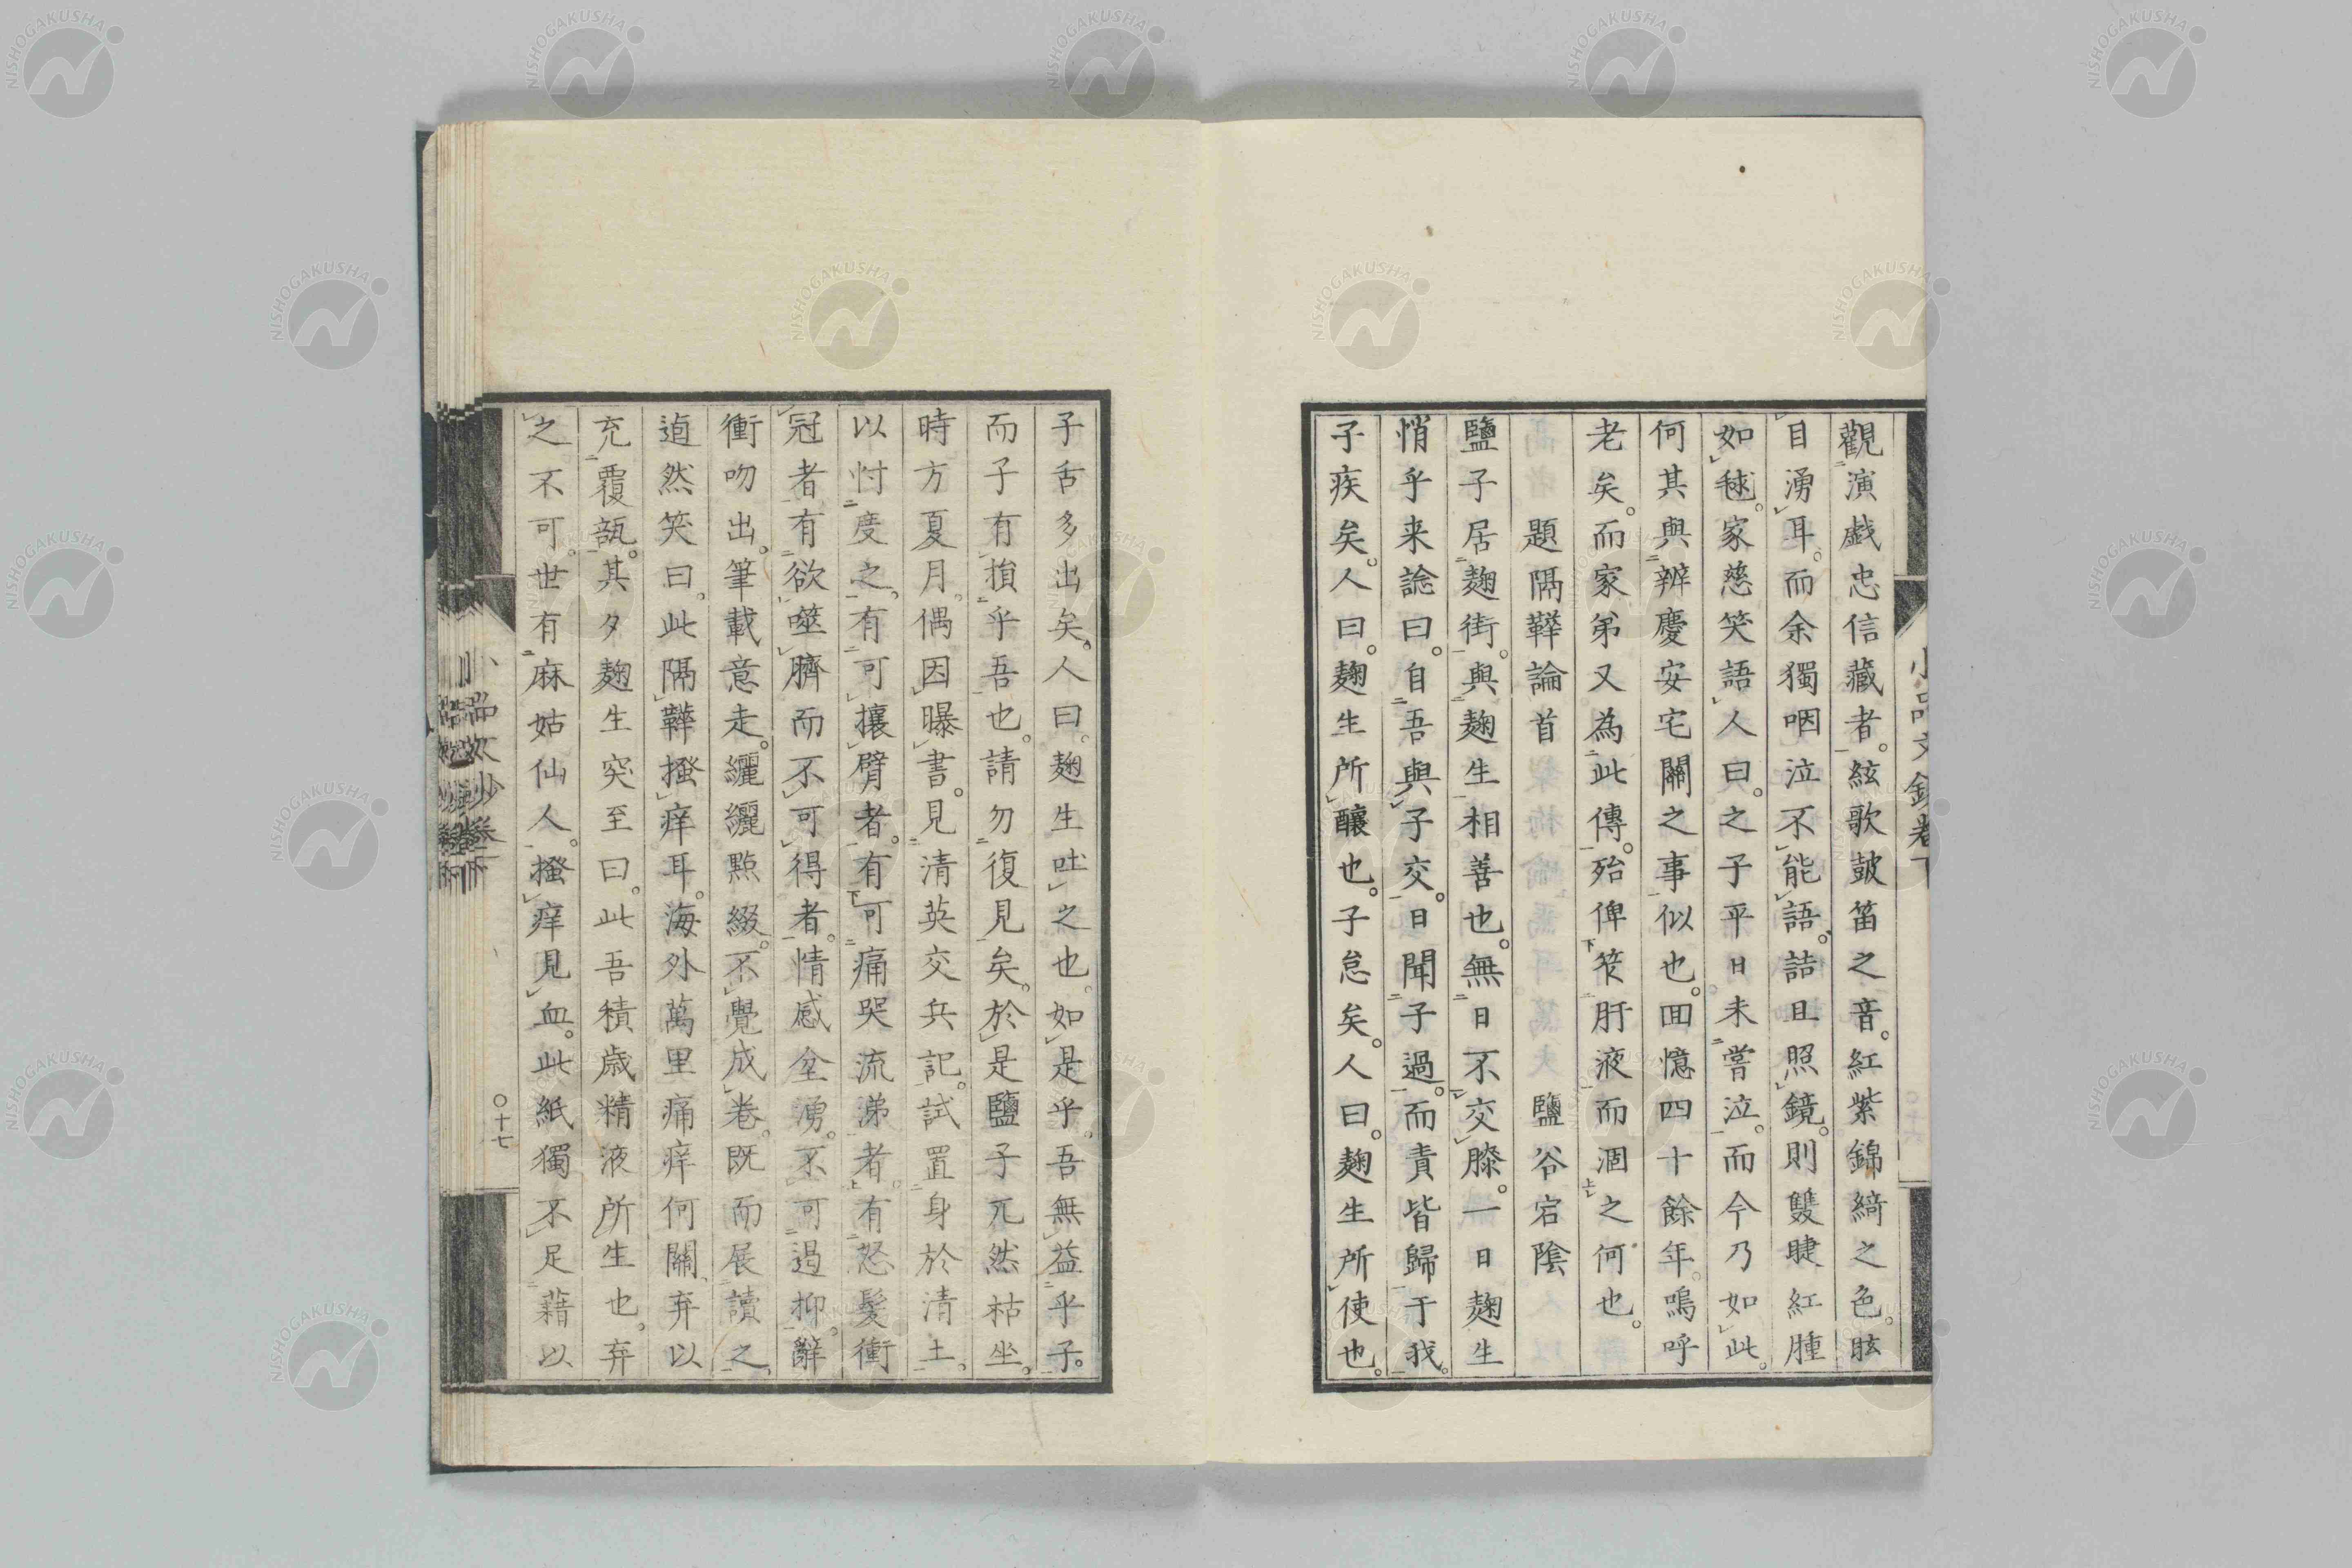 觀演戯忠信藏者。絃歌鼓笛之音。紅紫錦綺之色。眩
目湧耳。而余獨咽泣不能語。詰旦照鏡。則雙睫紅腫
如毬。家慈笑語人曰。之子平日未嘗泣。而今乃如此。
何其與辨慶安宅關之事似也。回憶四十餘年。嗚呼
老矣。而家弟又為此傳。殆俾笮肝液而涸之何也。
題隔鞾論首　鹽谷宕陰
鹽子居麹街。與麹生相善也。無日不交膝。一日麹生
悄乎来諗曰。自吾與子交。日聞子過。而責皆歸于我。
子疾矣。人曰。麹生所釀也。子怠矣。人曰。麹生所使也。
子舌多出矣。人曰。麹生吐之也。如是乎。吾無益乎子。
而子有損乎吾也。請勿復見矣。於是鹽子兀然枯坐。
時方夏月。偶因曝書。見清英交兵記。試置身於清土。
以忖度之。有可攘臂者。有可痛哭流涕者。有怒髮衝
冠者。有欲噬臍而不可得者。情感坌湧。不可遏抑。辭
衝吻出。筆載意走。纚纚點綴。不覺成卷。既而展讀之。
逌然笑曰。此隔鞾搔痒耳。海外萬里痛痒何關。弃以
充覆瓿。其夕麹生突至曰。此吾積歳精液所生也。弃
之不可。世有麻姑仙人。搔痒見血。此紙獨不足藉以
小品文鈔卷下
〇十七
NISHOGAKUSHA